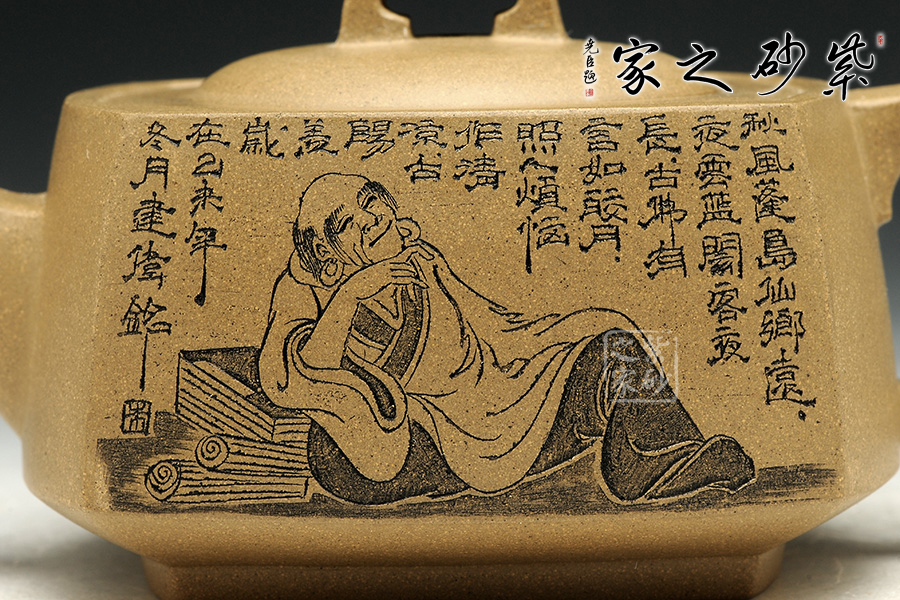 紫砂之家
堯臣題
秋風蓬島仙鄉遠
夜雲藍關客夜
長古佛有
言如皎月
照人煩惱
作清
涼古
陽
羨
歲
在乙未年
冬月建偉銘
紫砂之家